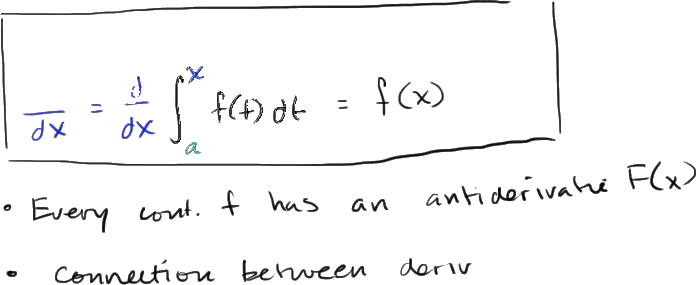 /dx = d/dx ∫_a^x f(t) dt = f(x)
• Every cont. f has an antiderivative F(x)
• Connection between deriv